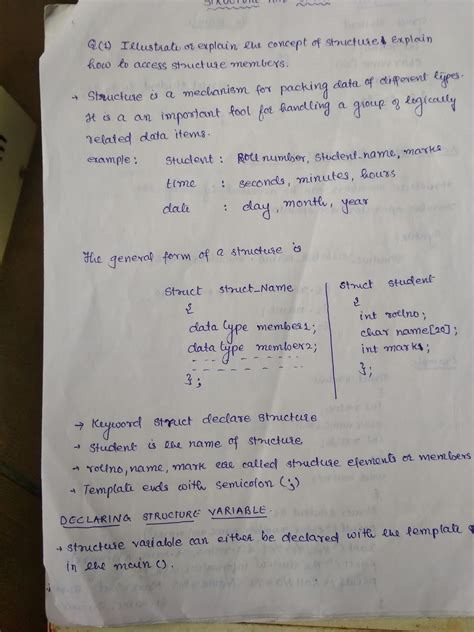 STRUCTURE AND
Q(1) Illustrate or explain the concept of structure & Explain
how to access structure members.
→ Structure is a mechanism for packing data of different types.
It is a an important tool for handling a group of logically
related data items.
example : Student : Roll number, Student_name, marks
time : seconds, minutes, hours
date : day, month, year
The general form of a structure is
Struct Struct_Name
{
data type member1;
data type member2;
- - - - - - - - - -
- - - - - - - - - -
};
Struct Student
{
int rollno;
char name[20];
int marks;
};
→ Keyword Struct declare structure
→ Student is the name of structure
→ rollno, name, mark are called structure elements or members
→ Template ends with semicolon (;)
DECLARING STRUCTURE VARIABLE
→ structure variable can either be declared with the template
in the main ().